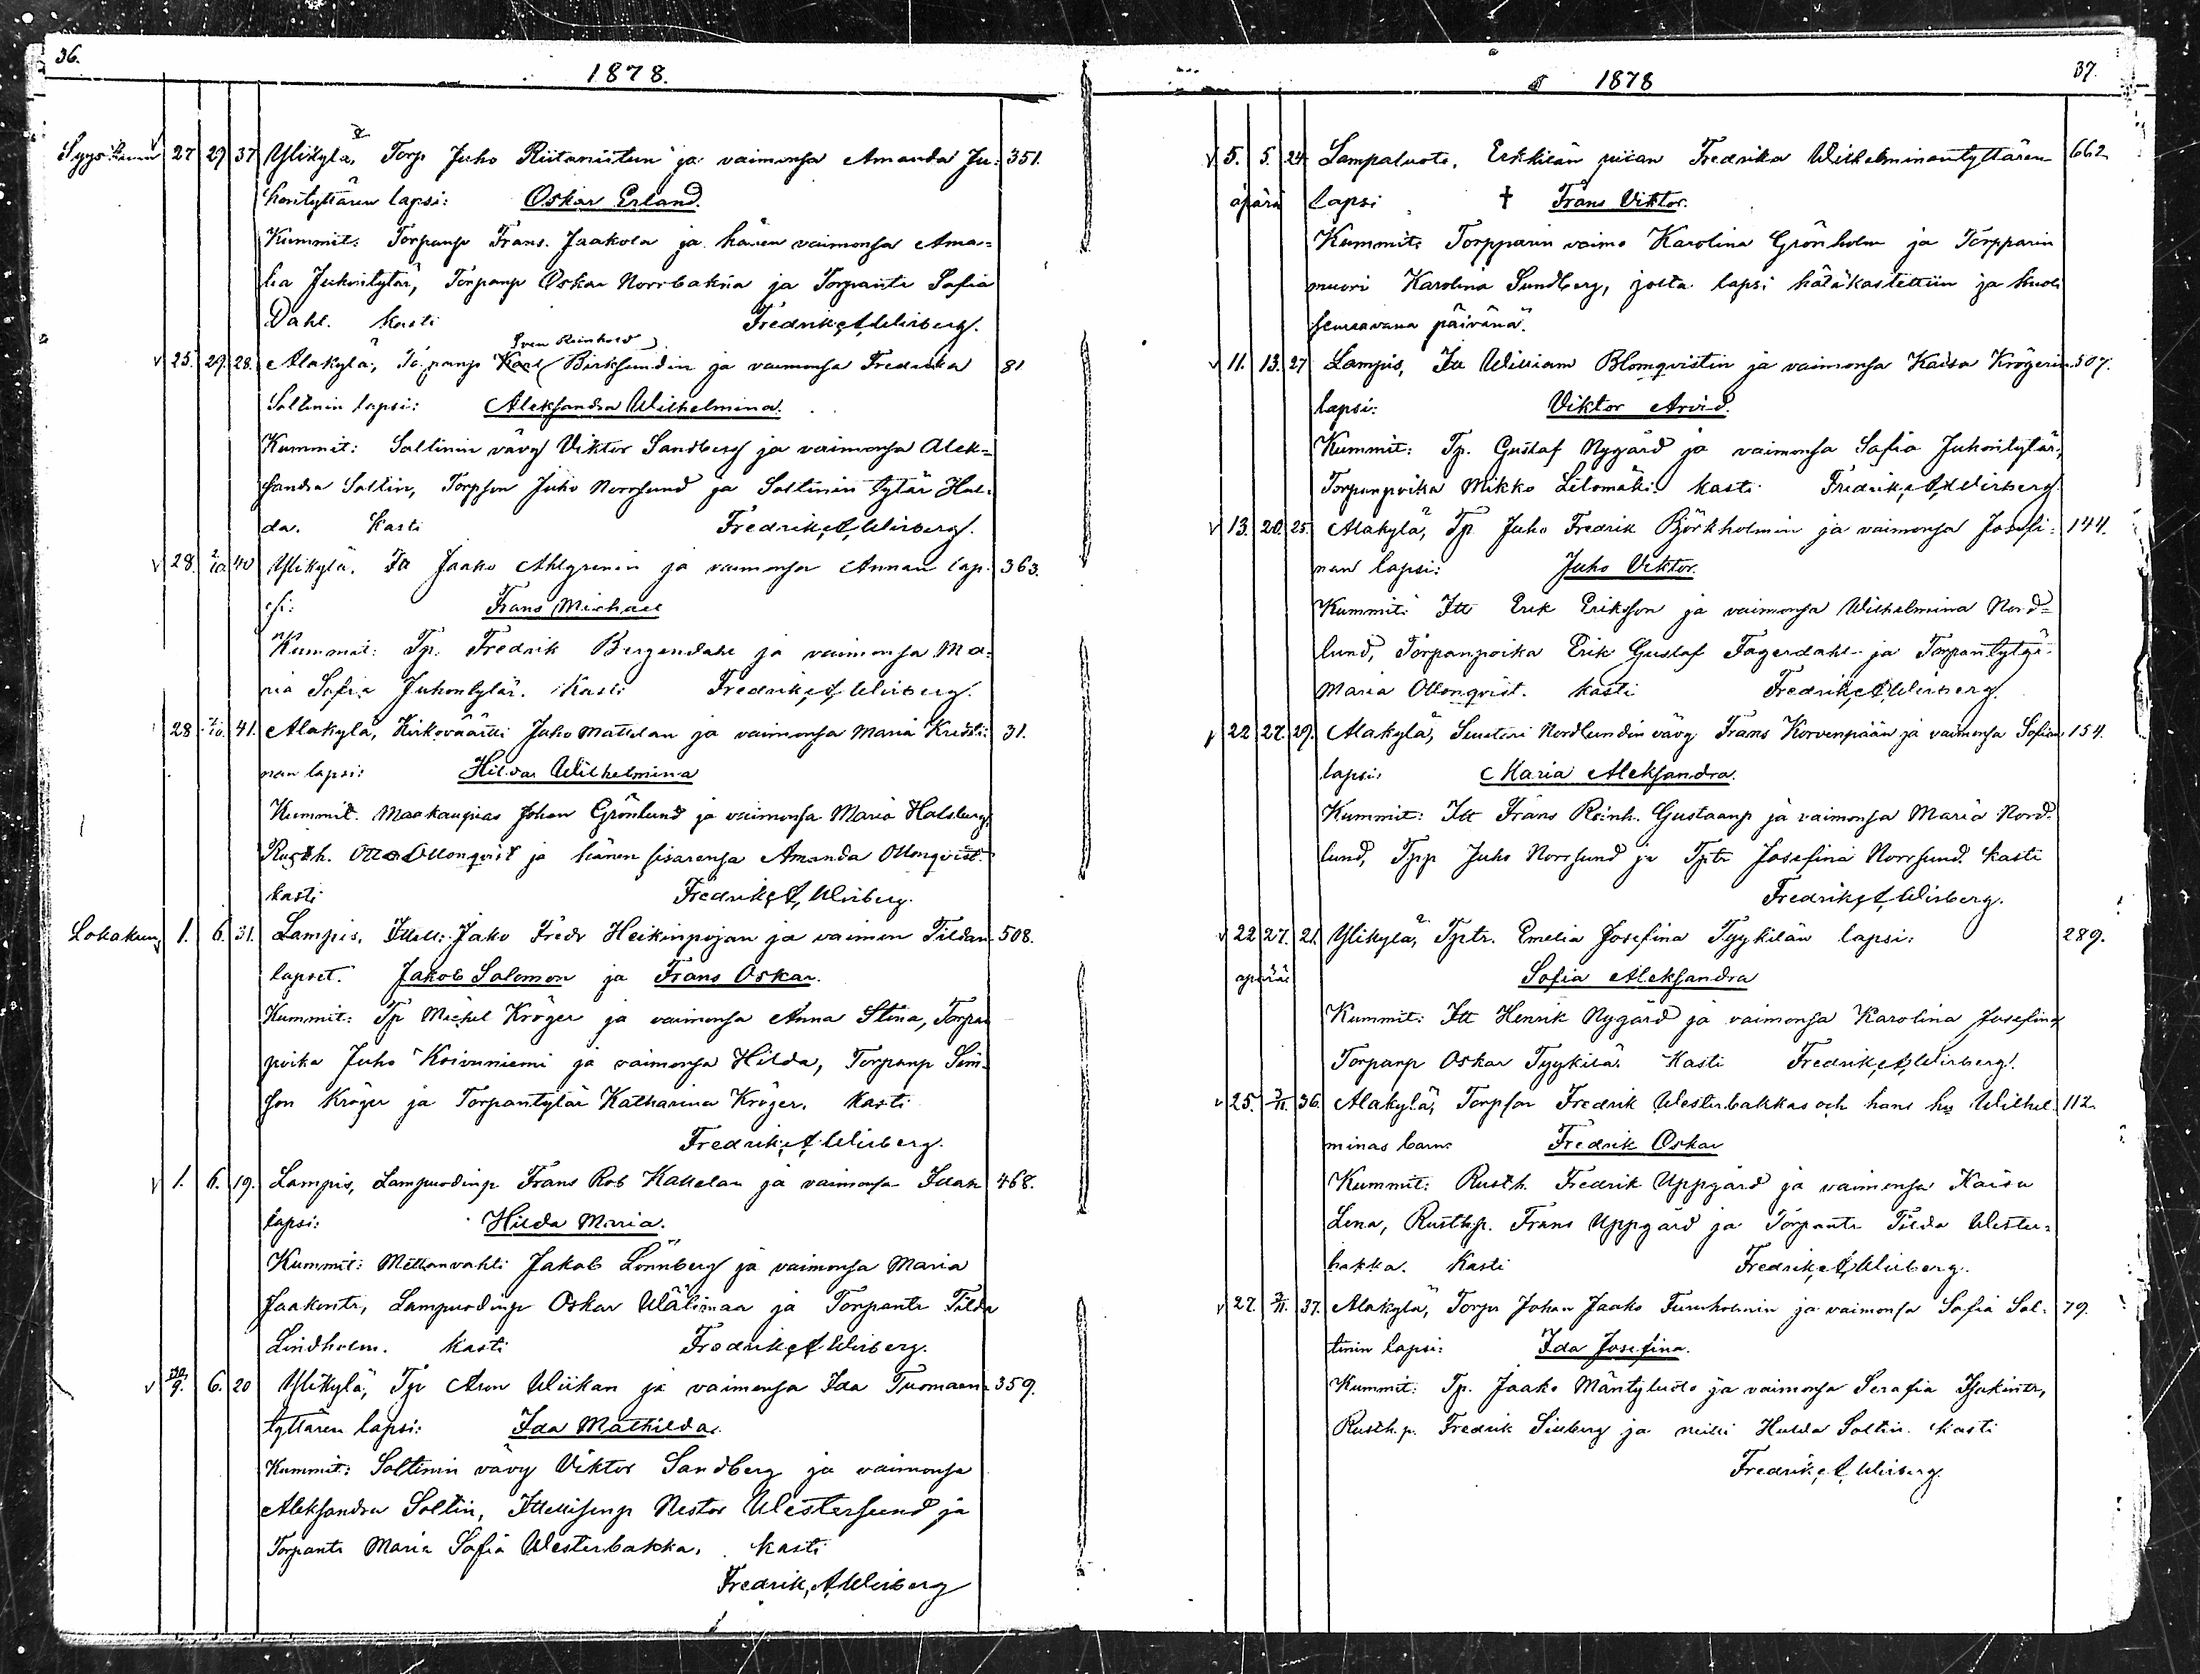 36.
1878.
Syys kuun v 27 29 37 Ylikylä, Torp Juho Riitaniitun ja vaimonsa Amanda Ju- 351.
hontyttären lapsi: Oskar Erland.
Kummit: Torpanp Frans. Jaakola ja hänen vaimonsa Ama=
lia Juhontytär, Torpanp Oskar Norrbakka ja Torpantr Sofia
Dahl. Kasti Fredrik A Wirberg.
Sven Reinhold
v 25. 29. 28. Alakylä, Torpanp Karl Birksundin ja vaimonsa Fredrika 81
Saltinin lapsi: Aleksandra Wilhelmina.
Kummit: Saltinin vävy Viktor Sandberg ja vaimonsa Alek=
sandra Saltin, Torpson Juho Norrsund ja Saltinin tytär Hul-
da. Kasti Fredrik A Wirberg.
v 28. 2/10 40 Ylikylä. Itt Jaako Ahlgrenin ja vaimonsa Annan lap- 363.
si: Frans Michael
Kummit: Tp. Fredrik Bergendahl ja vaimonsa Ma-
ria Sofia Juhontytär. Kasti Fredrik A Wirberg.
28 2/10 41. Alakylä, Kirkoväärti Juho Mattelan ja vaimonsa Maria Kristi- 31.
nan lapsi: Hilda Wilhelmina
Kummit. Maakaupias Johan Grönlund ja vaimonsa Maria Halsberg,
Rusth. Otto Ollonqvist ja hänen sisarensa Amanda Ollonqvist.
Kasti Fredrik A Wirberg.
Lokakuu 1. 6. 31. Lampis, Ittell: Jako Fredr Heikinpojan ja vaimon Tildan 508.
lapset. Jakob Salomon ja Frans Oskar.
Kummit: Tp Michel Kröger ja vaimonsa Anna Stina, Torpan
poika Juho Koivuniemi ja vaimonsa Hilda, Torpanp Sim-
son Kröger ja Torpantytär Katharina Kröger. Kasti
Fredrik A Wirberg.
v 1. 6. 19. Lampis, Lampuodinp Frans Rob Kallelan ja vaimonsa Idan 468.
lapsi: Hilda Maria.
Kummit: Mettänvahti Jakob Lönnberg ja vaimonsa Maria
Jaakontr, Lampuodinp Oskar Wälimaa ja Torpantr Tilda
Lindholm. Kasti Fredrik A Wirberg.
v 9. 6. 20 Ylikylä, Tp Aron Wiikan ja vaimonsa Ida Tuomaan 359.
tyttären lapsi: Ida Mathilda.
Kummit: Saltinin vävy Viktor Sandberg ja vaimonsa
Aleksandra Saltin, Ittellisenp Nestor Westersund ja
Torpantr Maria Sofia Westerbakka. Kasti
Fredrik A Wirberg
1878
37.
v 5. 5. 24 Lampaluoto, Erkkilän piian Fredrika Wilhelminantyttären 662
äpärä lapsi † Frans Viktor.
Kummit: Torpparin vaimo Karolina Grönholm ja Torpparin
muori Karolina Sundberg, jolta lapsi hätäkastettiin ja kuoli
seuraavana päivänä.
v 11. 13. 27 Lampis, Itt William Blomqvistin ja vaimonsa Kaisa Krögerin 507.
lapsi: Viktor Arvid.
Kummit: Tp. Gustaf Nygård ja vaimonsa Sofia Juhontytär,
Torpanpoika Mikko Lilomäki. Kasti Fredrik A Wirberg.
v 13. 20. 25. Alakylä, Tp Juho Fredrik Björkholmin ja vaimonsa Josefi- 144.
nan lapsi: Juho Viktor.
Kummit: Itt Erik Eriksson ja vaimonsa Wilhelmina Nord=
lund, Torpanpoika Erik Gustaf Fagerdahl ja Torpantytär
Maria Ollonqvist. Kasti Fredrik A Wirberg.
22 27. 29. Alakylä, Nordlundin vävy Frans Korvenpään ja vaimonsa Sofian 154.
lapsi: Maria Aleksandra.
Kummit: Itt Frans Reinh. Gustaanp ja vaimonsa Maria Nord-
lund, Tpp Juho Norrsund ja Tptr Josefina Norrsund. Kasti
Fredrik A Wirberg.
v 22 27. 21. Ylikylä, Tptr. Emelia Josefina Tyykilän lapsi: 289.
äpärä Sofia Aleksandra
Kummit: Itt Henrik Nygård ja vaimonsa Karolina Josefina
Torpanp Oskar Tyykilä. Kasti Fredrik A Wirberg.
v 25. 3/11. 36. Alakylä, Torpson Fredrik Westerbakkas och hans hu Wilhel 112
minas barn: Fredrik Oskar
Kummit: Rusth. Fredrik Uppgård ja vaimonsa Kaisa
Lena, Rusthp. Frans Uppgård ja Torpantr Tilda Wester-
bakka. Kasti Fredrik A Wirberg.
v 27. 3/11. 37. Alakylä, Torp Johan Jaako Furuholmin ja vaimonsa Sofia Sal- 79.
tinin lapsi: Ida Josefina.
Kummit: Tp. Jaako Mäntyluoto ja vaimonsa Serafia Isakintr,
Rusth.p. Fredrik Sieberg ja neiti Hulda Saltin. Kasti
Fredrik A Wirberg.